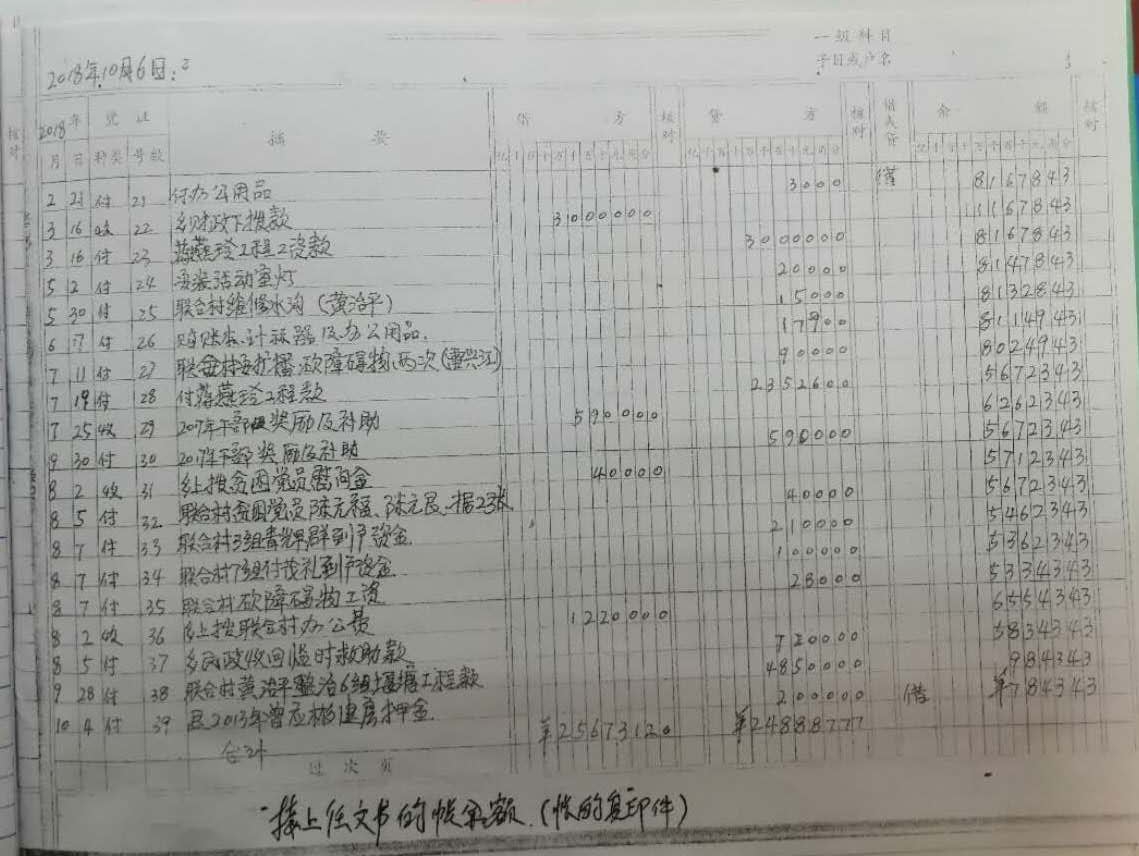 一级科目
子目或户名
2018年10月6日:
2018年 凭证 摘要 借方 核对 贷方 核对 借或贷 余额 核对
月 日 种类 号数 亿千百十万千百十元角分 亿千百十万千百十元角分 亿千百十万千百十元角分
2 21 付 21 付办公用品 3000 借 8167843
3 16 收 22 乡财政下拨款 3000000 11167843
3 16 付 23 工程工资款 3000000 8167843
5 2 付 24 安装活动室灯 20000 8147843
5 30 付 25 联合村维修水沟(黄治平) 15000 8132843
6 17 付 26 购账本、计算器及办公用品. 17900 8114943
7 11 付 27 砍障碍物、两次 90000 8024943
7 19 付 28 付 工程款 2352600 5672343
7 25 收 29 2017年干部 奖励及补助 590000 6262343
9 30 付 30 2017年干部奖励及补助 590000 5672343
8 2 收 31 乡上拨贫困党员慰问金 40000 5712343
8 5 付 32 联合村贫困党员陈元福、陈元良、据2张 40000 5672343
8 7 付 33 联合村3组 群到户资金 210000 5462343
8 7 付 34 联合村7组付茂礼到户资金 100000 5362343
8 7 付 35 联合村砍障碍物工资 28000 5334343
8 2 收 36 乡上拨联合村办公费 1220000 6554343
8 5 付 37 乡民政收回临时救助款 720000 5834343
9 28 付 38 联合村黄治平整治6组堰塘工程款 4850000 984343
10 4 付 39 退2013年曾应彬建房押金 200000 借 ¥784343
合计 ¥25673120 ¥24888777
过次页
接上任文书的帐余额.(帐的复印件)